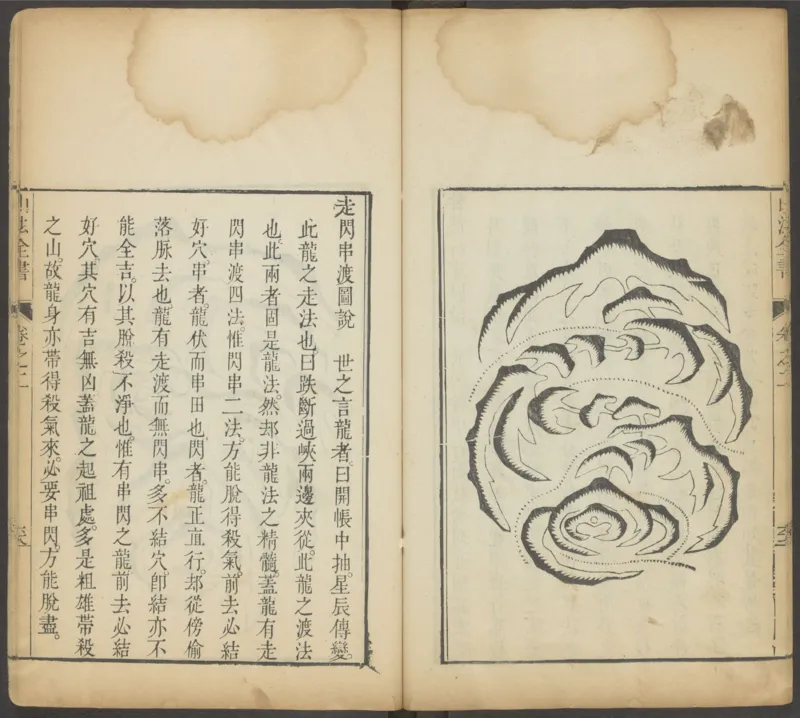 走閃串渡圖說　世之言龍者。曰開帳中抽。星辰傳變。
此龍之走法也。曰跌斷過峽。兩邊夾從。此龍之渡法
也。此兩者固是龍法。然却非龍法之精髓。蓋龍有走
閃串渡四法。惟閃串二法。方能脫得殺氣。前去必結
好穴。串者。龍伏而串田也。閃者。龍正直行。却從傍偷
落脉去也。龍有走渡而無閃串。多不結穴。卽結亦不
能全吉。以其脫殺不淨也。惟有串閃之龍。前去必結
好穴。其穴有吉無凶。蓋龍之起祖處。多是粗雄帶殺
之山。故龍身亦帶得殺氣來。必要串閃。方能脫盡。
山法全書
卷之二
山法全書
卷之二